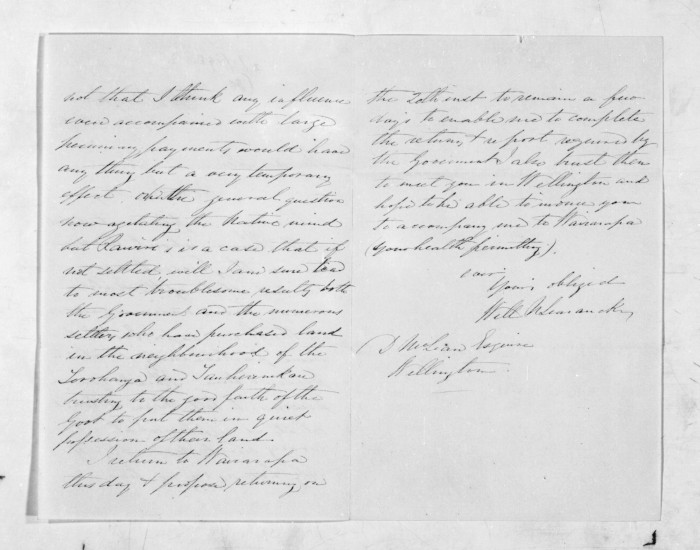 not that I think any influence
even accompanied with large
pecuniary payments would have
any thing but a very temporary
effect on the general question
now agitating the Native mind
but Rawiri's is a case that if
not settled will I am sure lead
to most troublesome results both
the Goverment and the numerous
settlers who have purchased land
in the neighbourhood of the
and
trusting to the good faith of the
Govt to put them in quiet
possession of their land.
I return to Wairarapa
this day & propose returning on
the 20th inst to remain a few
days to enable me to complete
the return & report required by
the Goverment I also trust then
to meet you in Wellington and
hope to be able to
to accompany me to Wairarapa
(your health permitting).
I am
Yours obliged
Will
D McLean Esquire
Wellington.